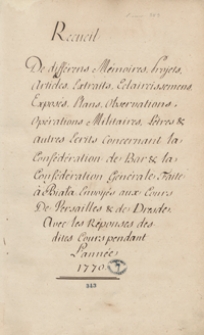 Recueil
De differens Mémoires, Projets,
Articles, Extraits, Eclaircissemens,
Exposés, Plans, Observations
Opérations Militaires, Lettres &
autres Ecrits Concernant la
Confédération de Bar & la
Confédération Générale Faite
à Biala, Envoyés aux Cours
De Versailles & de Dresde,
Avec les Réponses des
dites Cours pendant
l'année
1770